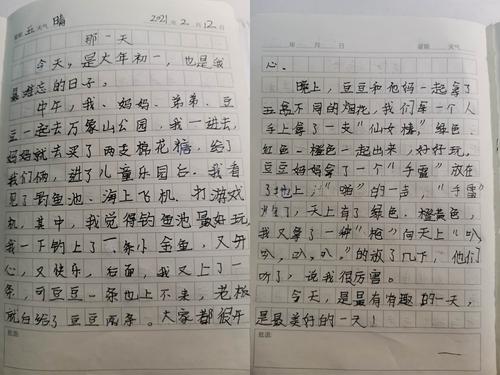 星期 五 天气 晴 2021 年 2 月 12 日
那一天
今天，是大年初一，也是我
最难忘的日子。
中午，我、妈妈、弟弟、豆
豆一起去万象山公园，我一进去，
妈妈就去买了两支棉花糖，给了
我们俩，进了儿童乐园后。我看
见了钓鱼池、海上飞机、打游戏
机，其中，我觉得钓鱼池最好玩，
我一下钓上了一条小金鱼，又开
心，又快乐，后面，我又上了一
条，可豆豆一条也上不来，老板
就白给了豆豆两条。大家都很开
批语:
年 月 日 星期 天气
心。
晚上，豆豆和他妈一起拿了
五条不同的烟花，我们每一个人
手上拿了一支“仙女棒，”绿色、
红色、橙色一起出来，好好玩，
豆豆妈妈拿了一个“手雷”放在
了地上，“啪”的一声，“手雷”
，天上有了绿色、橙黄色，
我又拿了一种“枪”向天上“叭、
叭，叭，叭，”的放了几下，他们
听了，说我很厉害。
今天，是最有有趣的一天，
是最美好的一天！
批语: